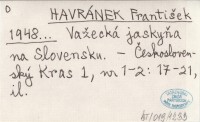 D
HAVRÁNEK František
1948... Važecká jaskyňa
na Slovensku. – Českosloven-
ský Kras 1, nr 1-2: 17-21,
il.